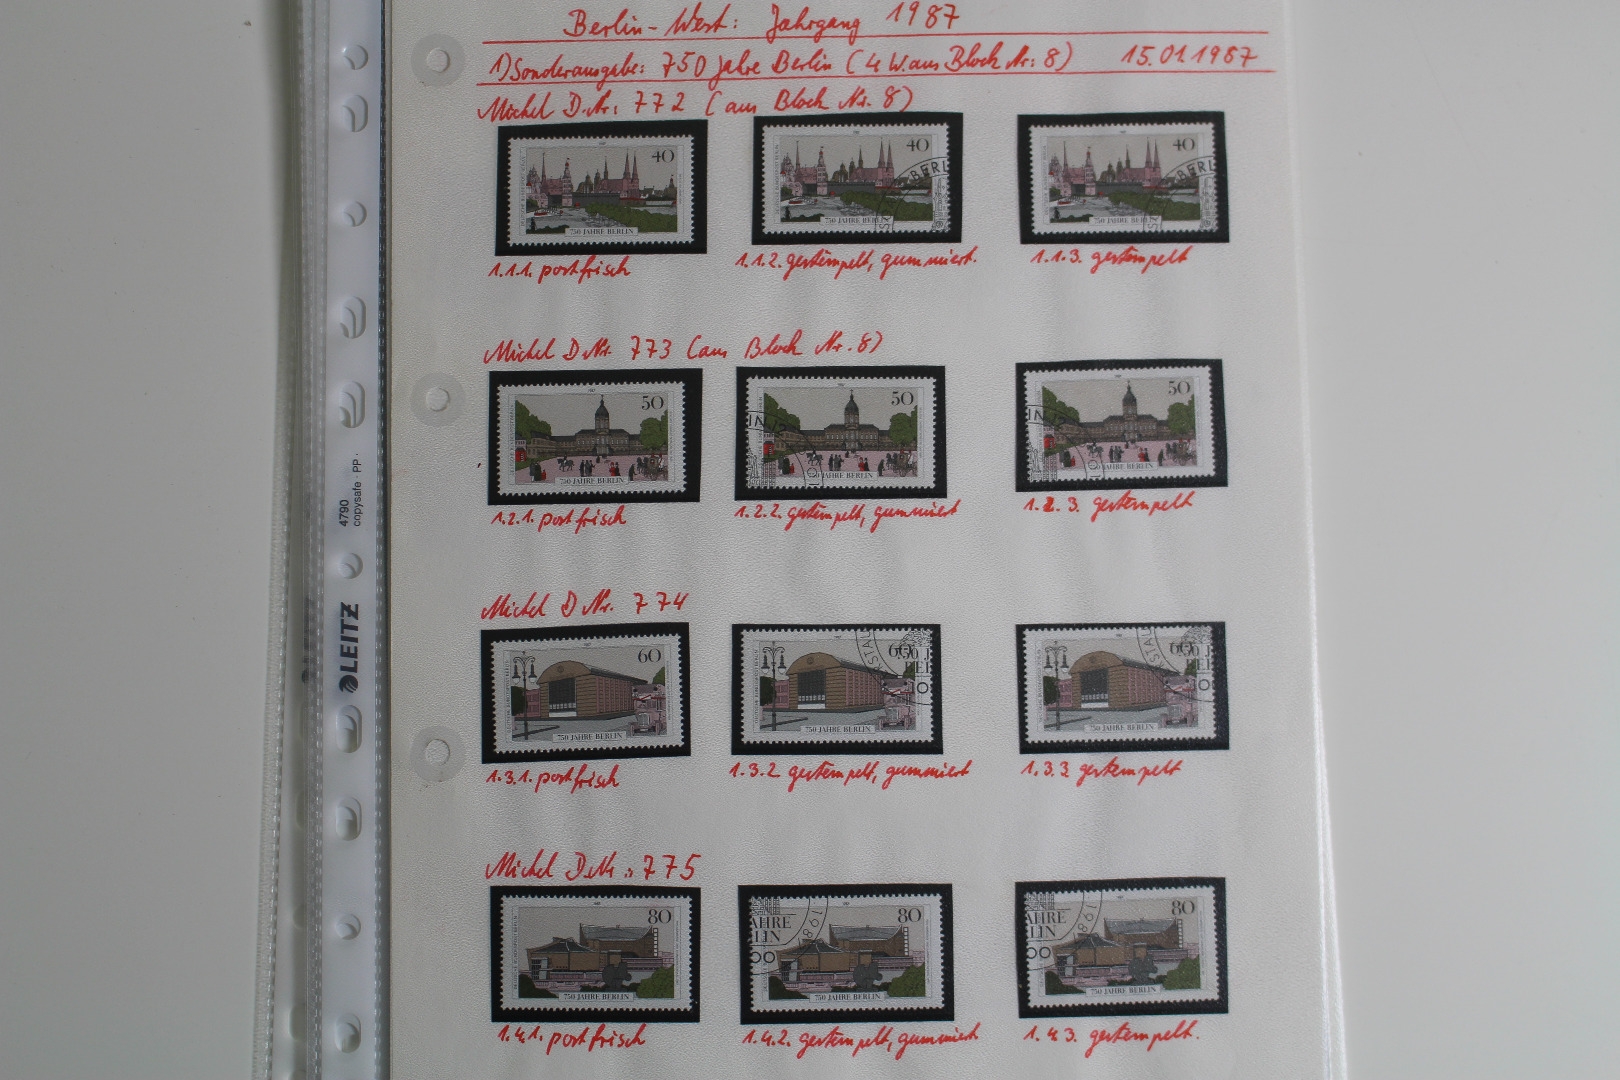 Berlin-West: Jahrgang 1987
1) Sonderausgabe: 750 Jahre Berlin (4 W. aus Block Nr: 8) 15.01.1987
Michel D.Nr: 772 (aus Block Nr. 8)
40 40 40
BERL BERL
750 JAHRE BERLIN 750 JAHRE BERLIN 750 JAHRE BERLIN
1.1.1. postfrisch 1.1.2. gestempelt, gummiert. 1.1.3. gestempelt
Michel D.Nr. 773 (aus Block Nr. 8)
50 50 50
750 JAHRE BERLIN 750 JAHRE BERLIN JAHRE BERLIN
1.2.1. postfrisch 1.2.2. gestempelt, gummiert 1.2.3. gestempelt
Michel D Nr. 774
60 60 60
750 JAHRE BERLIN 750 JAHRE BERLIN 750 JAHRE BERLIN
1.3.1. postfrisch 1.3.2 gestempelt, gummiert 1.3.3 gestempelt
Michel D.Nr.: 775
80 80 80
AHRE AHRE
LIN LIN
750 JAHRE BERLIN 750 JAHRE BERLIN 750 JAHRE BERLIN
1.4.1. postfrisch 1.4.2. gestempelt, gummiert 1.4.3. gestempelt.
LEITZ
4790
copysafe · PP ·